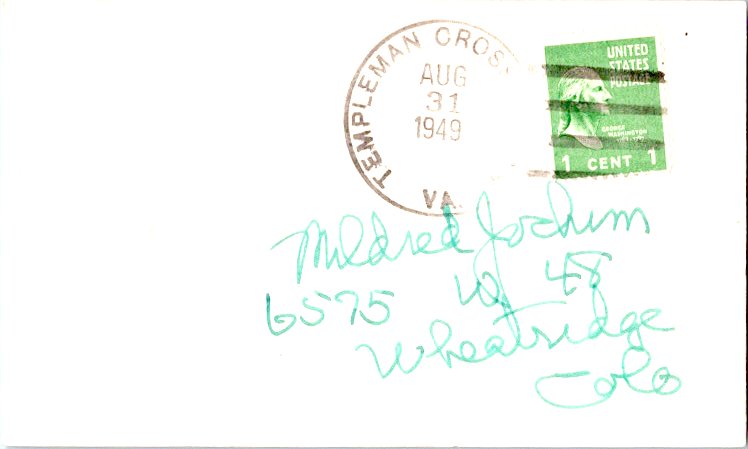 TEMPLEMAN CROSS
AUG
31
1949
VA.
UNITED
STATES
POSTAGE
GEORGE
WASHINGTON
1 CENT 1
Mildred Jochim
6575 W 48
Wheatridge
Colo